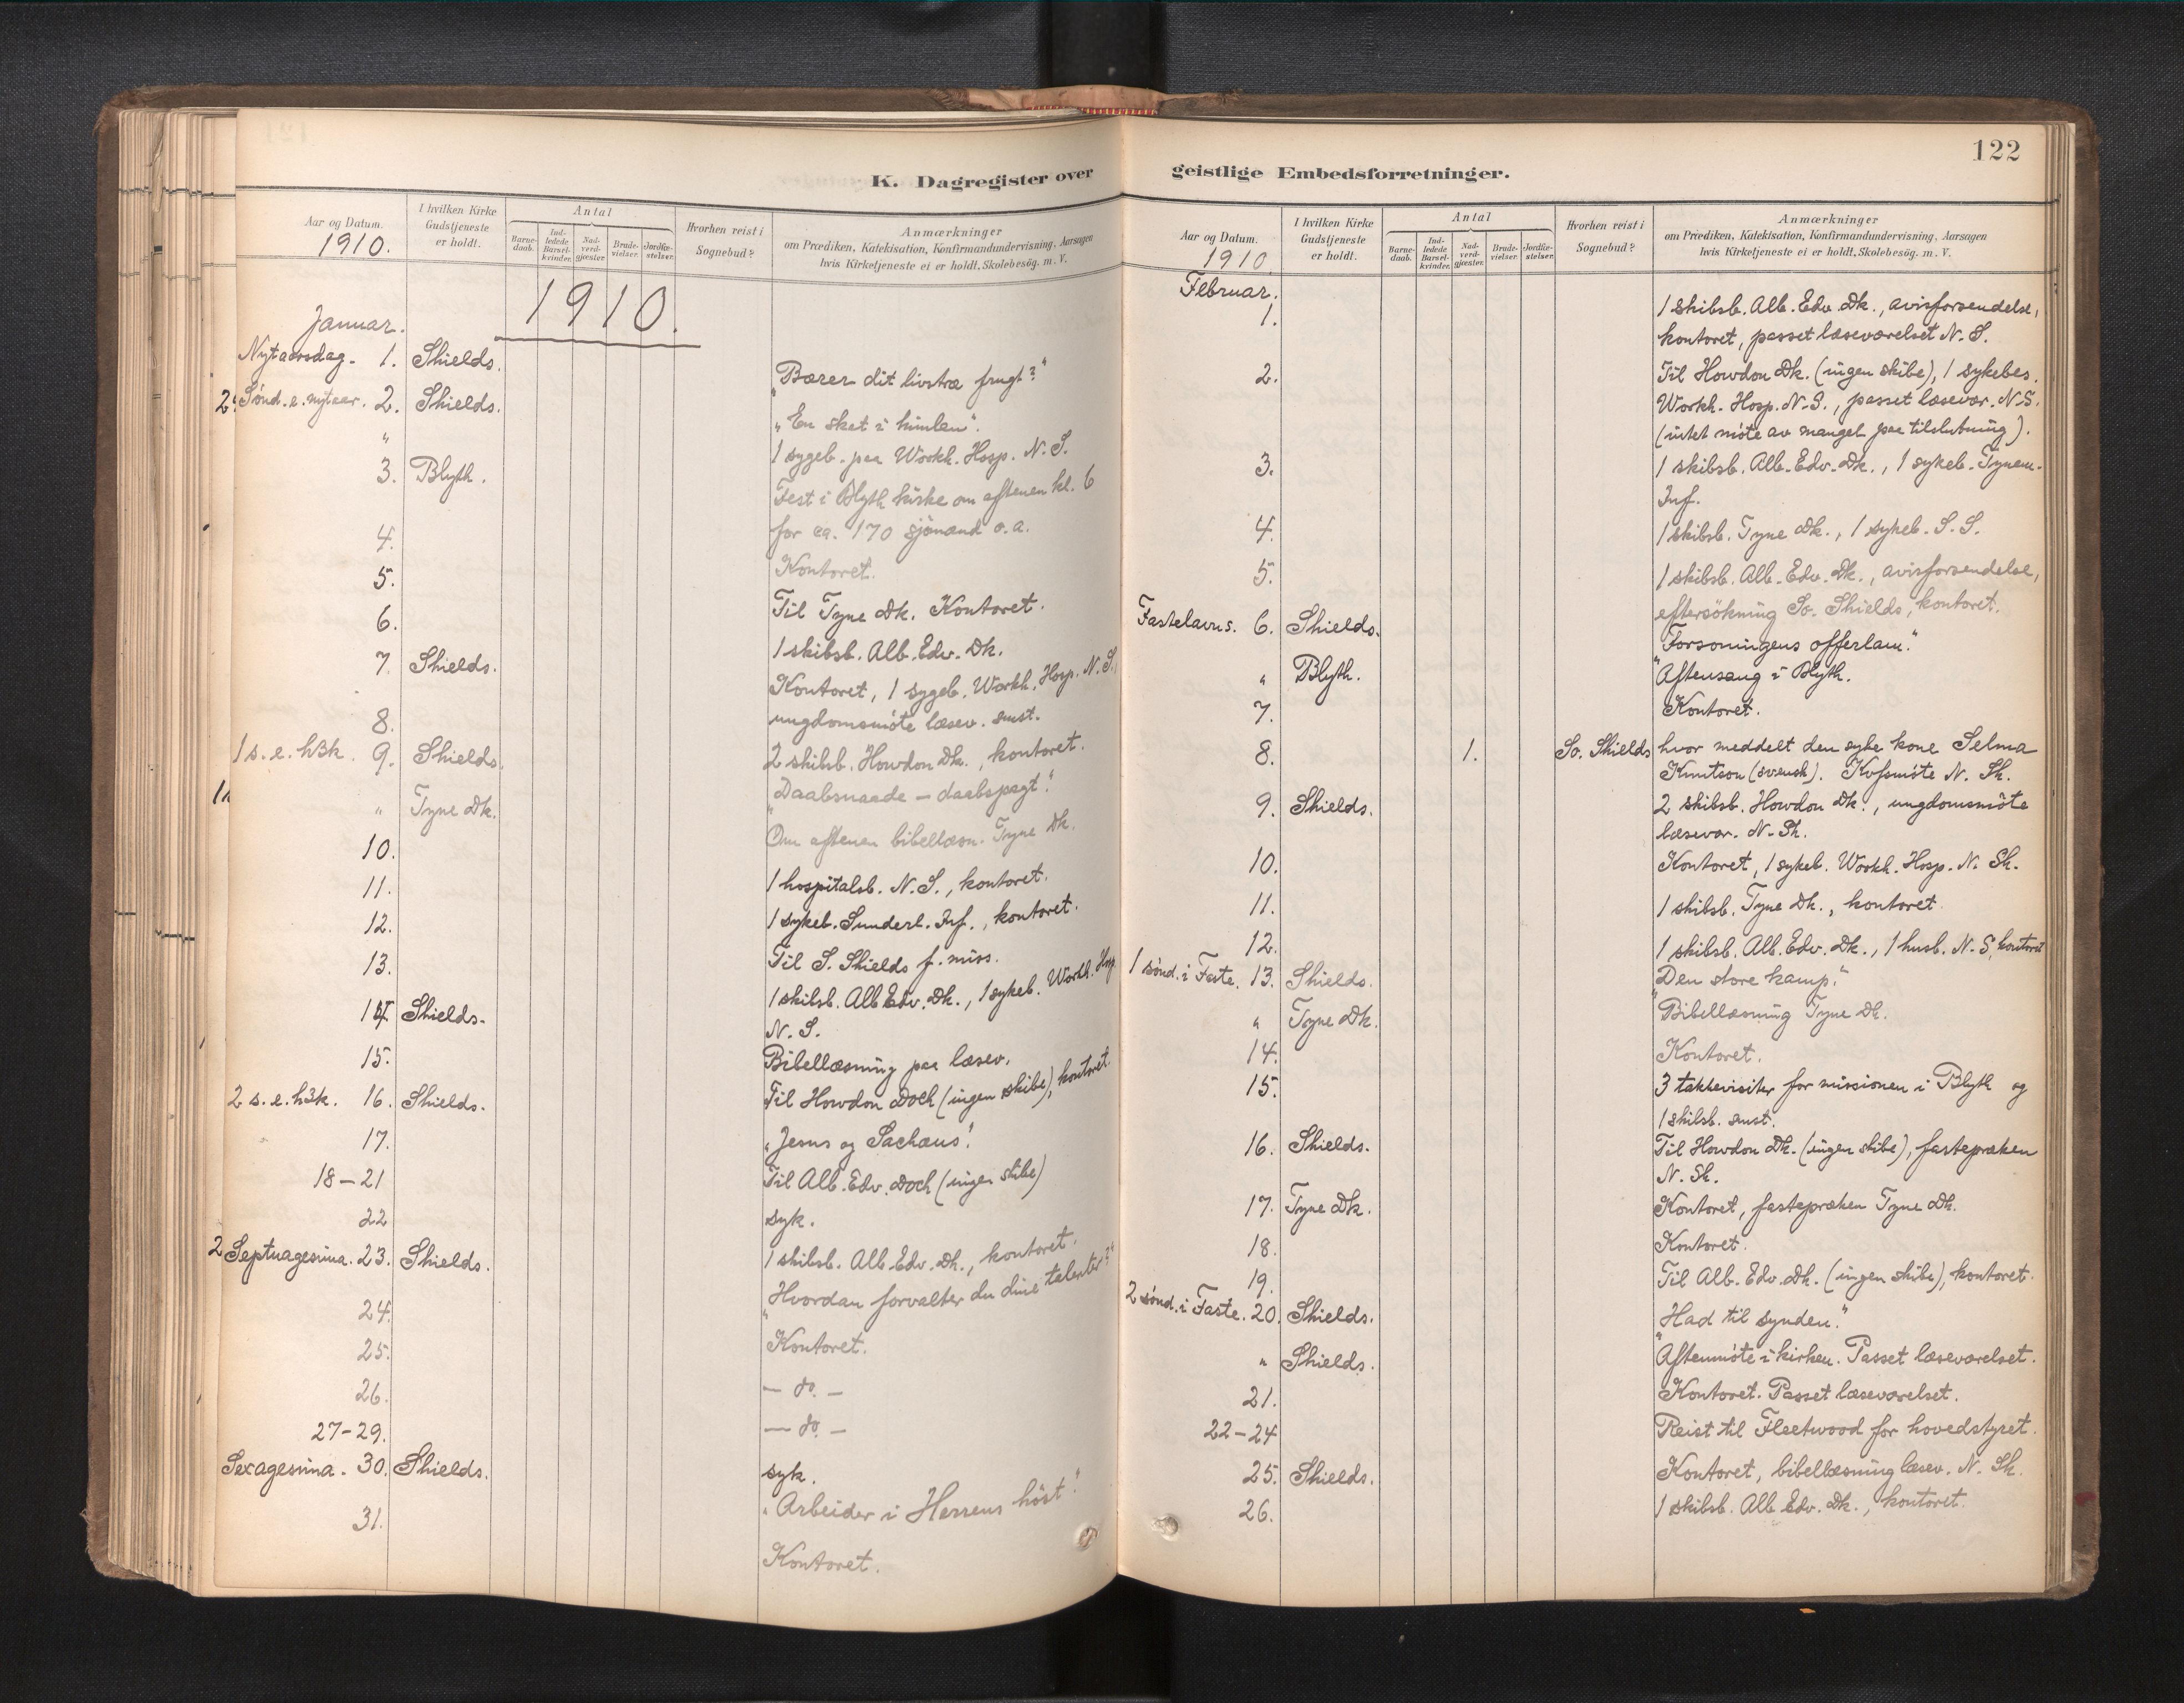 122
K. Dagregister over
Aar og Datum.
1910.
I hvilken Kirke Gudstjeneste er holdt.
Antal
Barne-daab.
Ind-ledede Barsel-kvinder.
Nad-verd-gjæster.
Brude-vielser.
Jordfæ-stelser.
Hvorhen reist i Sognebud?
Anmærkninger
om Prædiken, Katekisation, Konfirmandundervisning, Aarsagen
hvis Kirketjeneste ei er holdt, Skolebesög. m. V.
1910.
Januar.
Nytaarsdag. 1. Shields. „Bærer dit livstræ frugt?“
Sönd. e. nytaar. 2. Shields. „En sket i himlen“.
„ 1 sygeb. paa Workh. Hosp. N. S.
3. Blyth. Fest i Blyth kirke om aftenen kl. 6
for ca. 170 sjömænd o. a.
4. Kontoret.
5. Til Tyne Dk. Kontoret.
6. 1 skibsb. Alb. Edv. Dk.
7. Shields. Kontoret, 1 sygeb. Workh. Hosp. N. S.,
ungdomsmöte læsev. smst.
8. 2 skibsb. Howdon Dk., kontoret.
1 s. e. h3k. 9. Shields. „Daabsnaade – daabspagt“.
„ Tyne Dk. Om aftenen bibellæsn. Tyne Dk.
10. 1 hospitalsb. N. S., kontoret.
11. 1 sykeb. Sunderl. Inf., kontoret.
12. Til S. Shields f. miss.
13. 1 skibsb. Alb. Edv. Dk., 1 sykeb. Workh. Hosp.
N. S.
14. Shields. Bibellæsning paa læsev.
15. Til Howdon Dock (ingen skibe), kontoret.
2 s. e. h3k. 16. Shields. „Jesus og Sachæus“.
17. Til Alb. Edv. Dock (ingen skibe)
18–21 syk.
22 1 skibsb. Alb. Edv. Dk., kontoret.
Septuagesima. 23. Shields. „Hvordan forvalter du dine talenter?“
24. Kontoret.
25. – do. –
26. – do. –
27–29. syk.
Sexagesima. 30. Shields. „Arbeider i Herrens höst“.
31. Kontoret.
geistlige Embedsforretninger.
Aar og Datum.
1910
I hvilken Kirke Gudstjeneste er holdt.
Antal
Barne-daab.
Ind-ledede Barsel-kvinder.
Nad-verd-gjæster.
Brude-vielser.
Jordfæ-stelser.
Hvorhen reist i Sognebud?
Anmærkninger
om Prædiken, Katekisation, Konfirmandundervisning, Aarsagen
hvis Kirketjeneste ei er holdt, Skolebesög. m. V.
Februar.
1. 1 skibsb. Alb. Edv. Dk., avisforsendelse,
kontoret, passet læseværelset N. S.
2. Til Howdon Dk. (ingen skibe), 1 sykebes.
Workh. Hosp. N. S., passet læsevær. N. S.
(intet möte av mangel paa tilslutning).
3. 1 skibsb. Alb. Edv. Dk., 1 sykeb. Tynem.
Inf.
4. 1 skibsb. Tyne Dk., 1 sykeb. S. S.
5. 1 skibsb. Alb. Edv. Dk., avisforsendelse,
eftersökning So. Shields, kontoret.
Fastelavns. 6. Shields. „Forsoningens offerlam“.
„ Blyth. Aftensang i Blyth.
7. Kontoret.
8. 1. So. Shields hvor meddelt den syke kone Selma
Knutson (svensk). Kvfsmöte N. Sh.
9. Shields. 2 skibsb. Howdon Dk., ungdomsmöte
læsevær. N. Sh.
10. Kontoret, 1 sykeb. Workh. Hosp. N. Sh.
11. 1 skibsb. Tyne Dk., kontoret
12. 1 skibsb. Alb. Edv. Dk., 1 husb. N. S, kontoret
1 sönd. i Faste. 13. Shields. „Den store kamp“.
„ Tyne Dk. Bibellæsning Tyne Dk.
14. Kontoret.
15. 3 takkevisiter for missionen i Blyth og
1 skibsb. smst.
16. Shields. Til Howdon Dk. (ingen skibe), fastepræken
N. Sh.
17. Tyne Dk. Kontoret, fastepræken Tyne Dk.
18. Kontoret.
19. Til Alb. Edv. Dk. (ingen skibe), kontoret.
2 sönd. i Faste. 20. Shields. „Had til synden“.
„ Shields. Aftenmöte i kirken. Passet læseværelset.
21. Kontoret. Passet læseværelset.
22–24 Reist til Fleetwood for hovedstyret.
25. Shields. Kontoret, bibellæsning læsev. N. Sh.
26. 1 skibsb. Alb. Edv. Dk., kontoret.